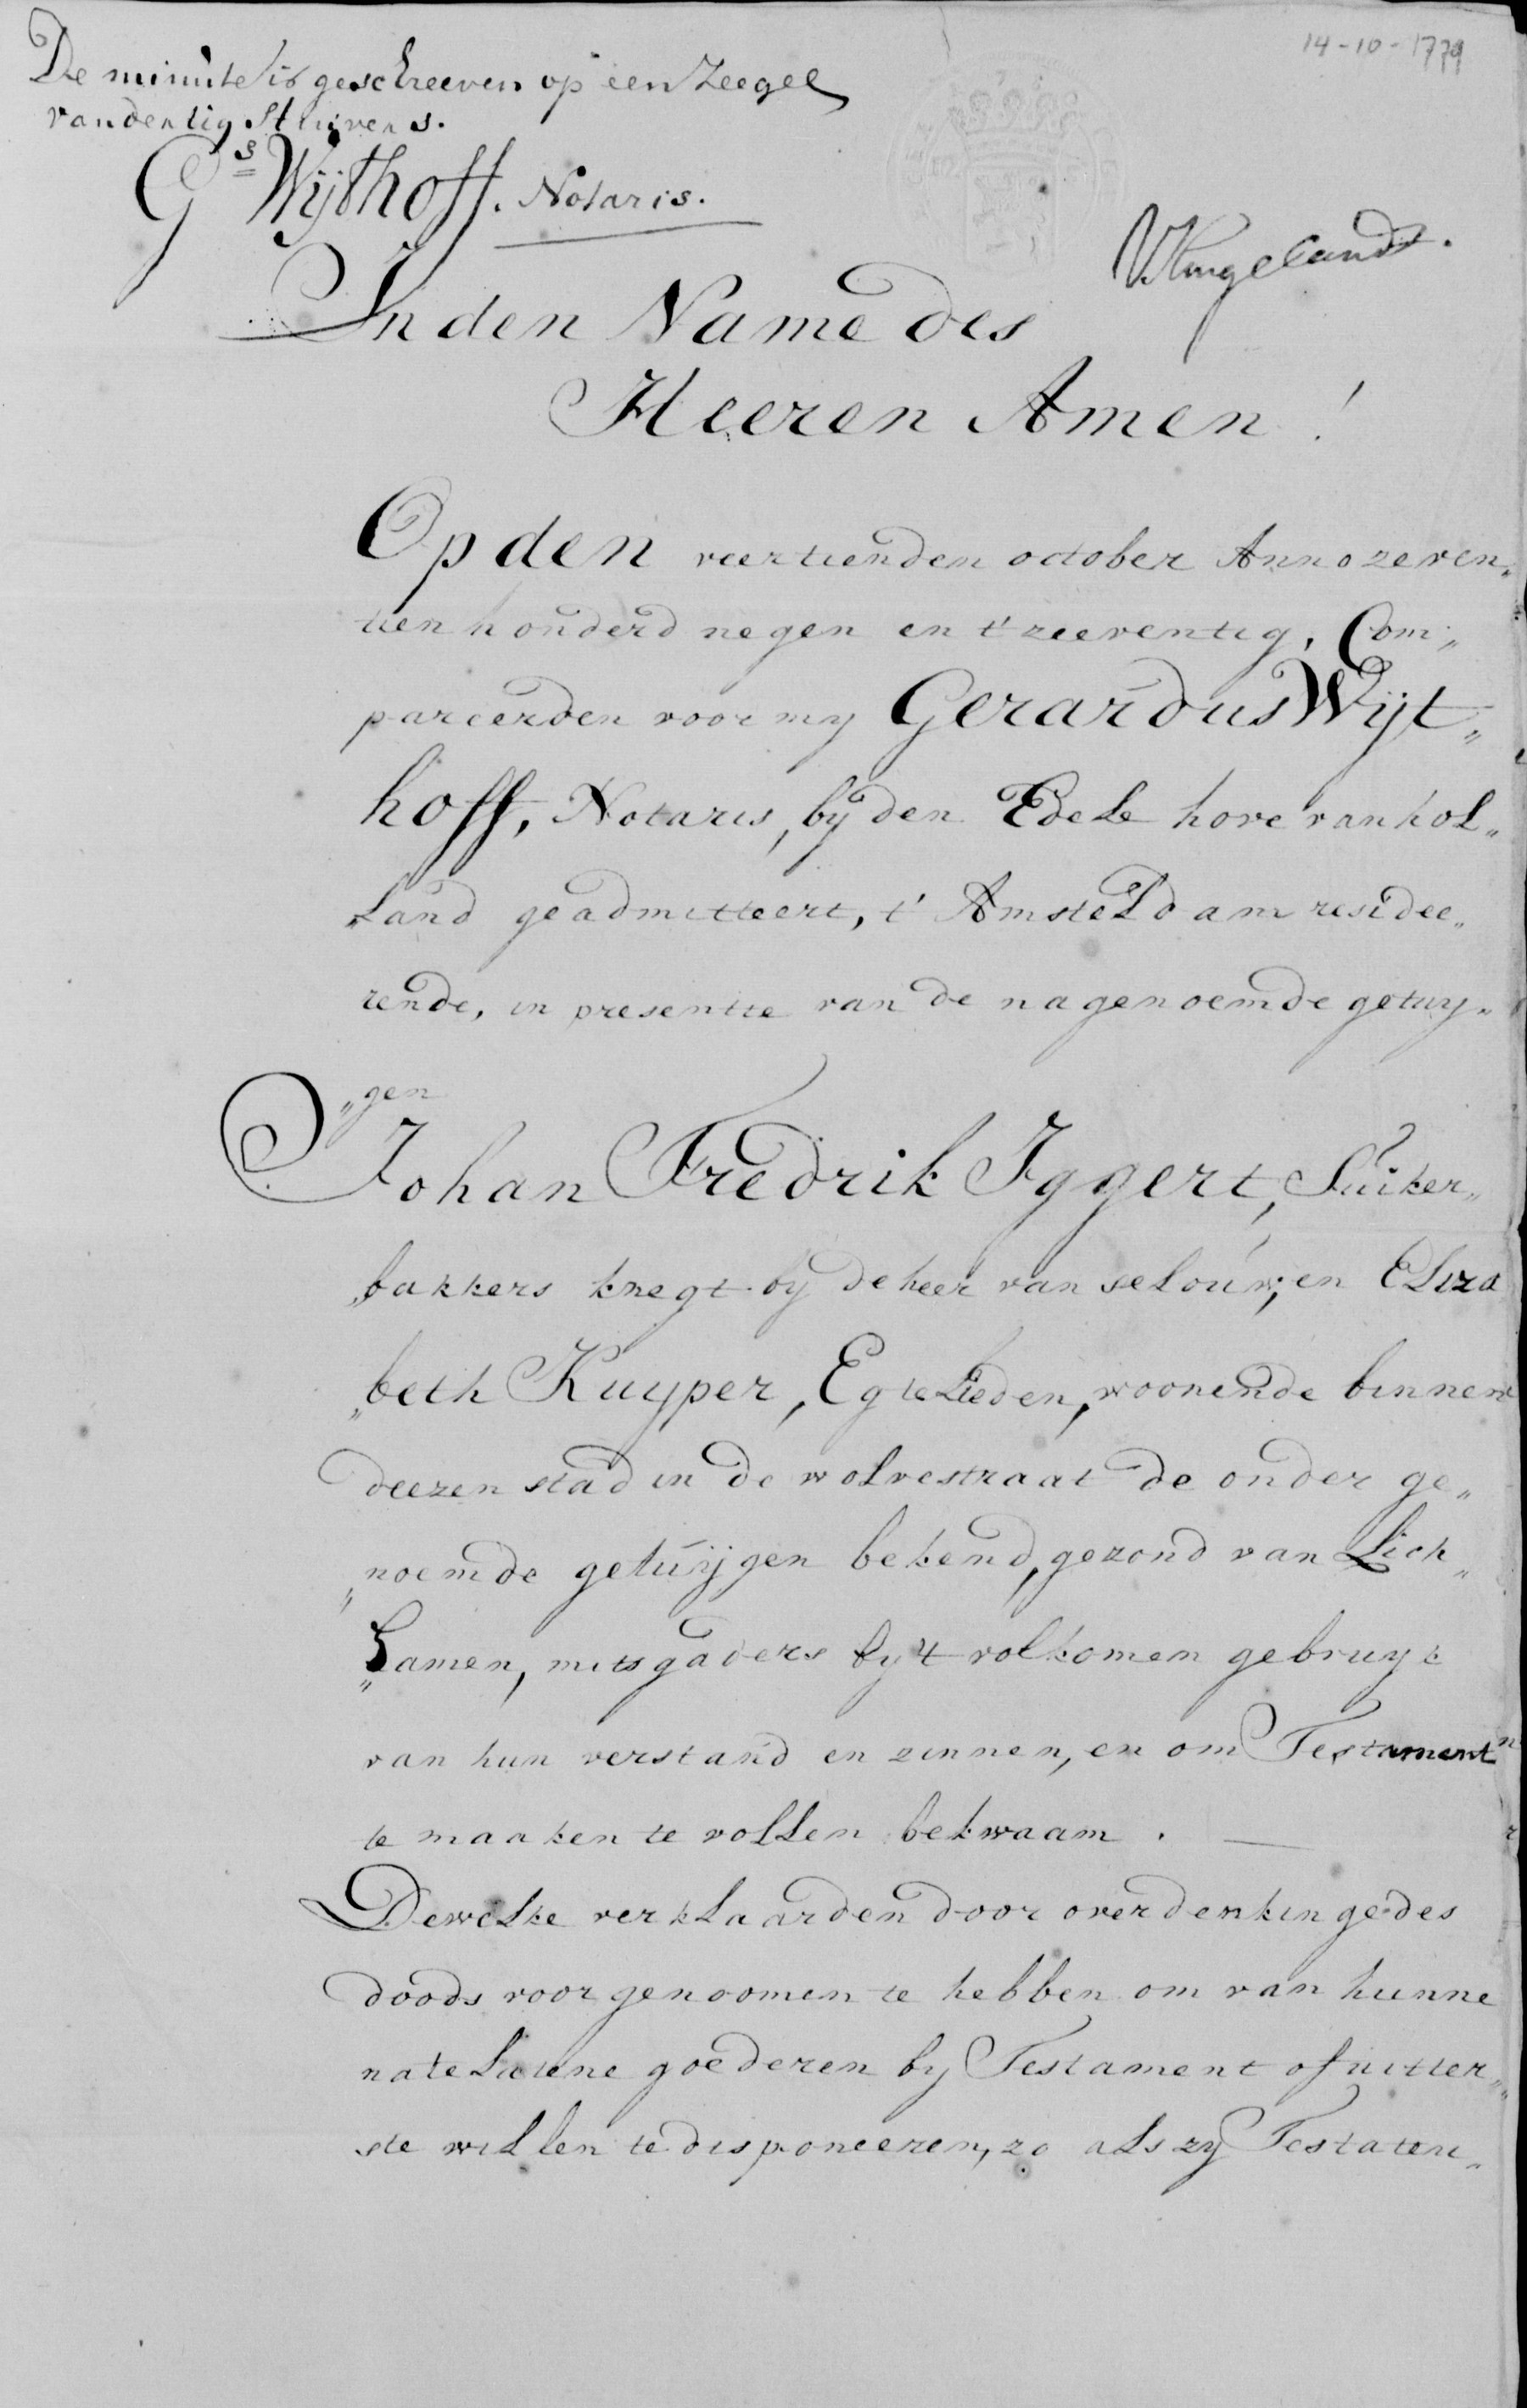 14-10-1779
De minute is geschreeven op een Zeegel
van dertig Stuivers.
Gs Wijthoff. Notaris.
In den Name des
Heeren Amen!
Op den veertienden october Anno zeven„
tien honderd negen en t'zeeventig, Com„
pareerden voor my Gerardus Wijt„
hoff, Notaris, by den Edele hove van hol„
„land geadmitteert, t' Amsteldam residee„
rende, in presentie van de nagenoemde getuy„
„gen
Johan Fredrik Iggert, Suiker„
„bakkers knegt by de heer van selouw, en Eliza
„beth Kuyper, Egtelieden, woonende binnen
deezen stad in de wolvestraat de onder ge„
„noemde getuijgen bekend, gezond van Lich„
„Lamen, mitsgaders by 't volkomen gebruyk
van hun verstand en zinnen, en om Testament
te maaken te vollen bekwaam.
Dewelke verklaarden door overdenkinge des
doods voorgenoomen te hebben om van hunne
natelatene goederen by Testament of uitter„
ste willen te disponeeren, zo als zy Testaten„